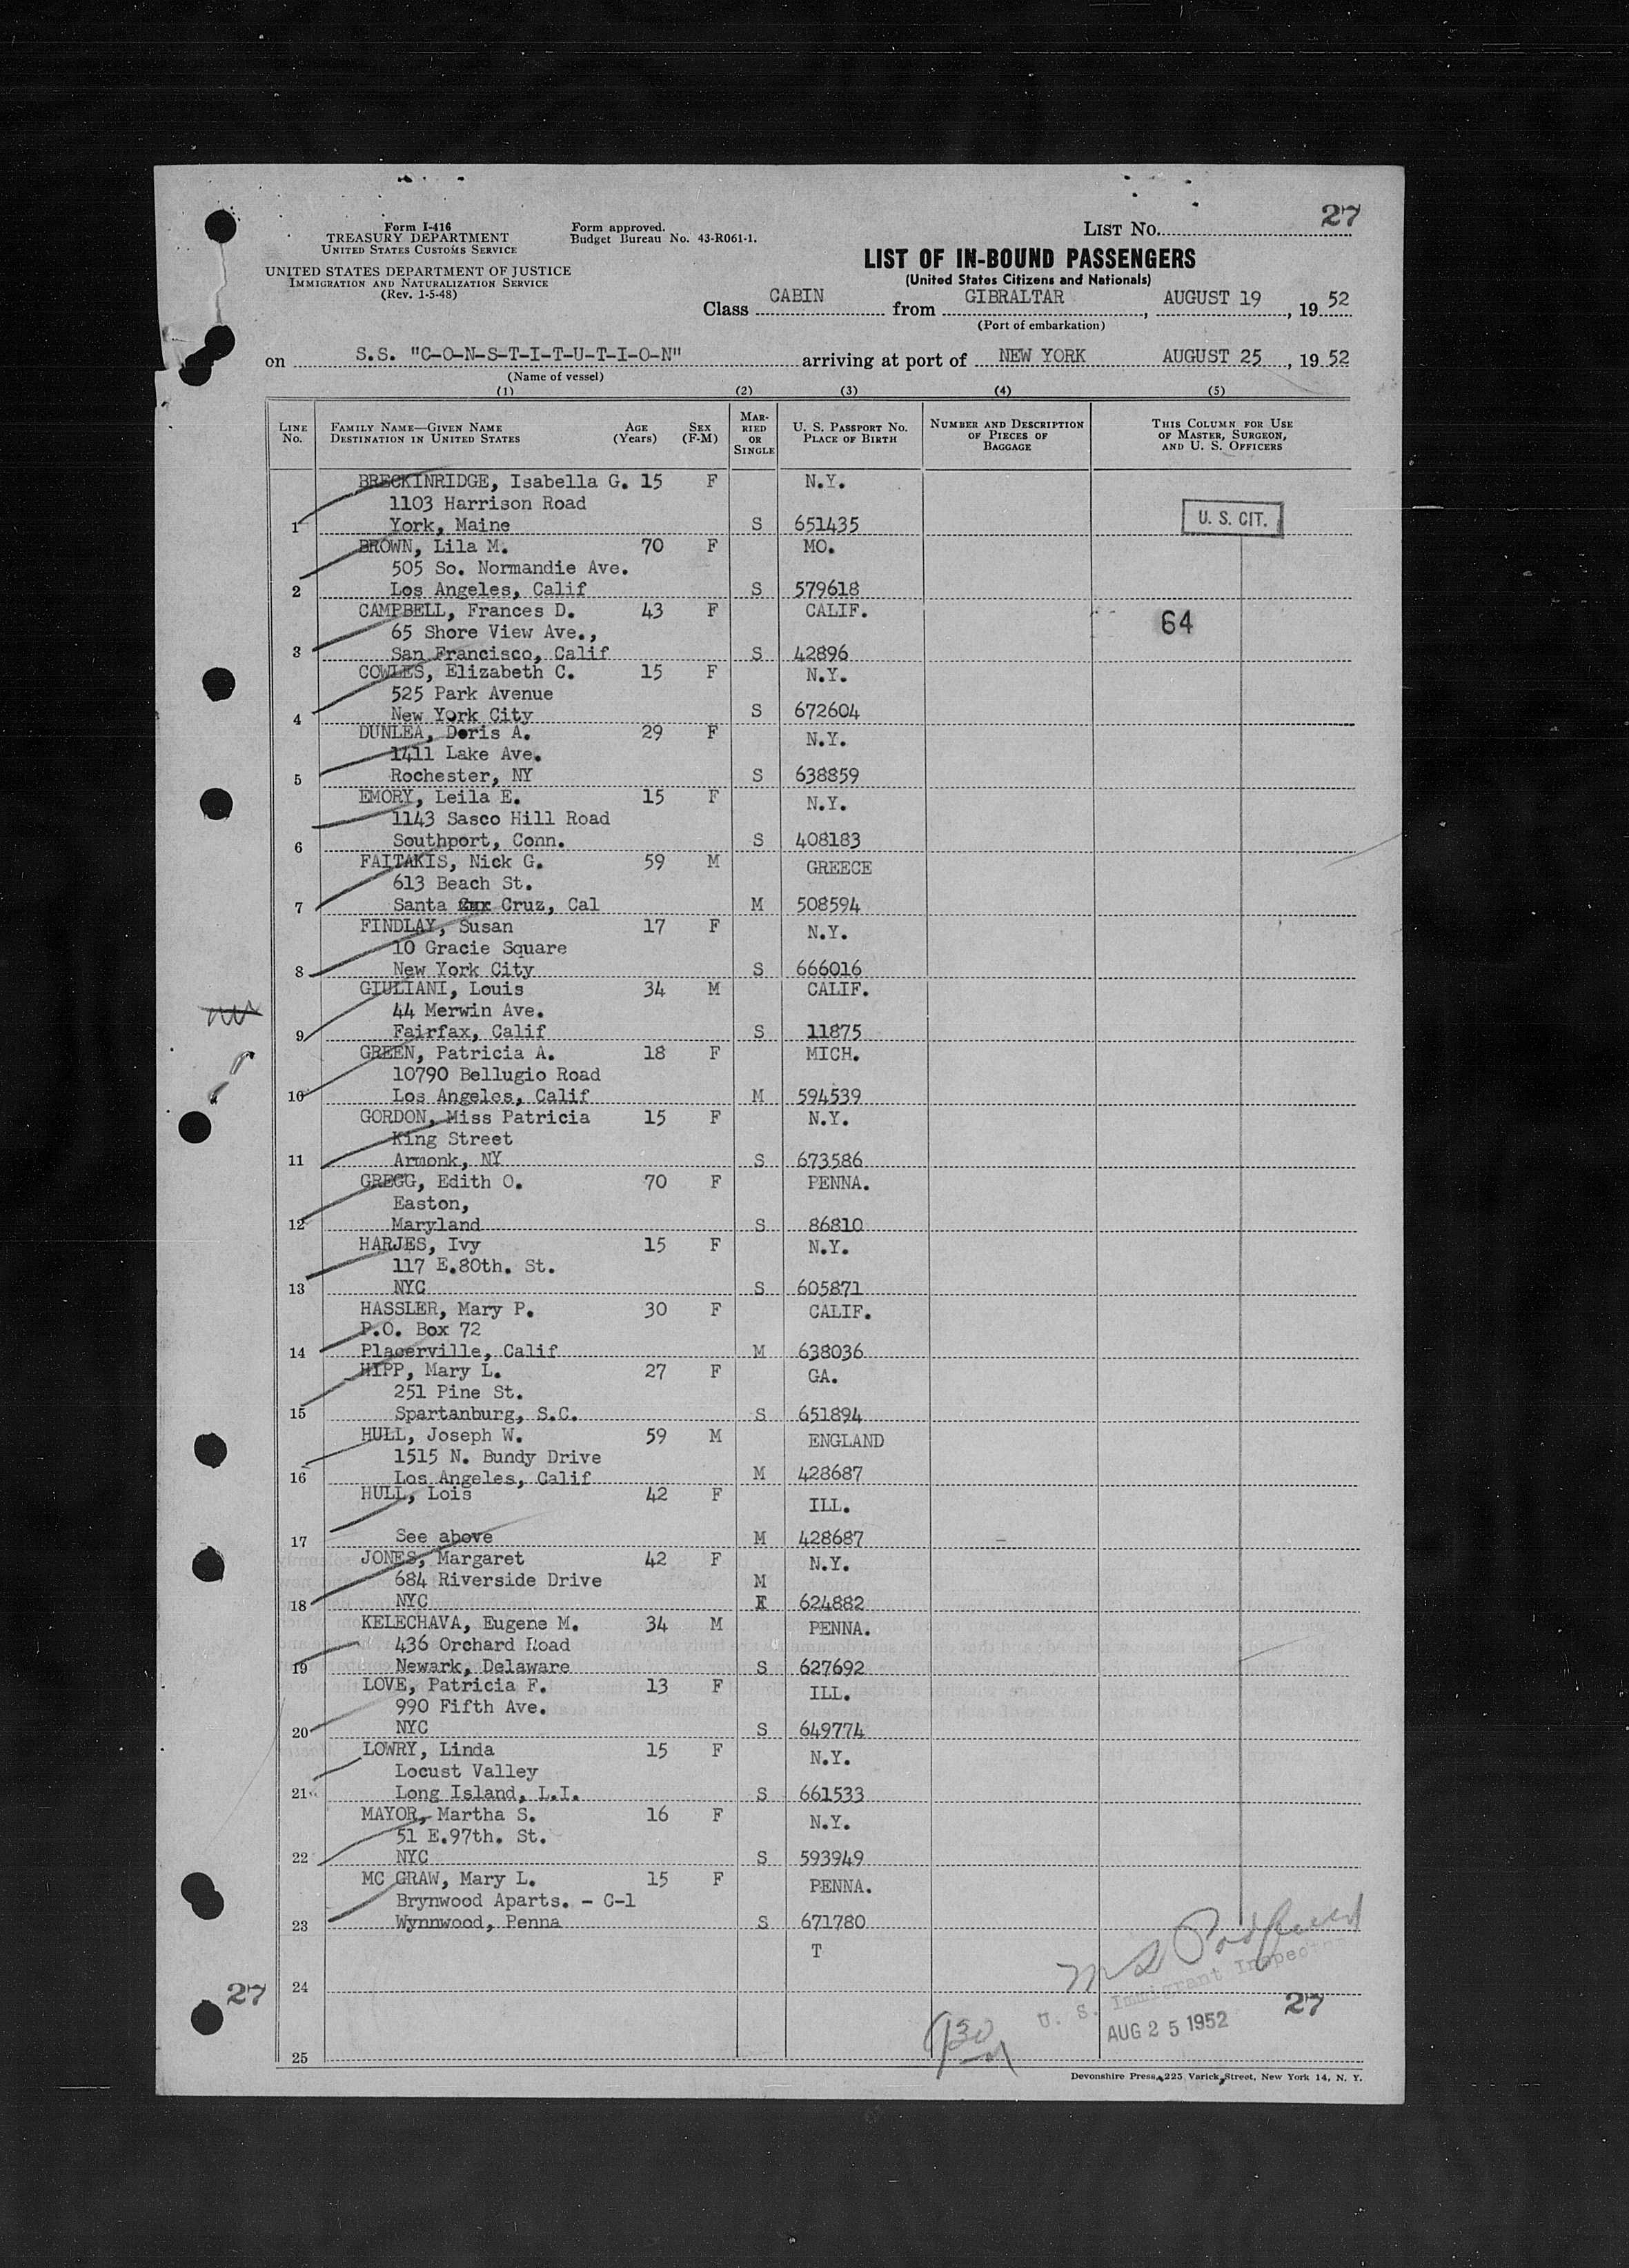 27
Form I-416
TREASURY DEPARTMENT
UNITED STATES CUSTOMS SERVICE
UNITED STATES DEPARTMENT OF JUSTICE
IMMIGRATION AND NATURALIZATION SERVICE
(Rev. 1-5-48)
Form approved.
Budget Bureau No. 43-R061-1.
LIST No.
LIST OF IN-BOUND PASSENGERS
(United States Citizens and Nationals)
Class CABIN from GIBRALTAR, AUGUST 19, 19 52
(Port of embarkation)
on S.S. "C-O-N-S-T-I-T-U-T-I-O-N" arriving at port of NEW YORK AUGUST 25, 19 52
(Name of vessel)
(1) (2) (3) (4) (5)
LINE No. FAMILY NAME—GIVEN NAME DESTINATION IN UNITED STATES AGE (Years) SEX (F-M) MARRIED OR SINGLE U. S. PASSPORT No. PLACE OF BIRTH NUMBER AND DESCRIPTION OF PIECES OF BAGGAGE THIS COLUMN FOR USE OF MASTER, SURGEON, AND U. S. OFFICERS
BRECKINRIDGE, Isabella G. 15 F N.Y.
1103 Harrison Road
1 York, Maine S 651435 U. S. CIT.
BROWN, Lila M. 70 F MO.
505 So. Normandie Ave.
2 Los Angeles, Calif S 579618
CAMPBELL, Frances D. 43 F CALIF. 64
65 Shore View Ave.,
3 San Francisco, Calif S 42896
COWLES, Elizabeth C. 15 F N.Y.
525 Park Avenue
4 New York City S 672604
DUNLEA, Doris A. 29 F N.Y.
1411 Lake Ave.
5 Rochester, NY S 638859
EMORY, Leila E. 15 F N.Y.
1143 Sasco Hill Road
6 Southport, Conn. S 408183
FAITAKIS, Nick G. 59 M GREECE
613 Beach St.
7 Santa Cruz, Cal M 508594
FINDLAY, Susan 17 F N.Y.
10 Gracie Square
8 New York City S 666016
GIULIANI, Louis 34 M CALIF.
44 Merwin Ave.
9 Fairfax, Calif S 11875
GREEN, Patricia A. 18 F MICH.
10790 Bellugio Road
10 Los Angeles, Calif M 594539
GORDON, Miss Patricia 15 F N.Y.
King Street
11 Armonk, NY S 673586
GREGG, Edith O. 70 F PENNA.
Easton,
12 Maryland S 86810
HARJES, Ivy 15 F N.Y.
117 E.80th. St.
13 NYC S 605871
HASSLER, Mary P. 30 F CALIF.
P.O. Box 72
14 Placerville, Calif M 638036
HIPP, Mary L. 27 F GA.
251 Pine St.
15 Spartanburg, S.C. S 651894
HULL, Joseph W. 59 M ENGLAND
1515 N. Bundy Drive
16 Los Angeles, Calif M 428687
HULL, Lois 42 F ILL.
17 See above M 428687
JONES, Margaret 42 F N.Y.
684 Riverside Drive M
18 NYC 624882
KELECHAVA, Eugene M. 34 M PENNA.
436 Orchard Road
19 Newark, Delaware S 627692
LOVE, Patricia F. 13 F ILL.
990 Fifth Ave.
20 NYC S 649774
LOWRY, Linda 15 F N.Y.
Locust Valley
21 Long Island, L.I. S 661533
MAYOR, Martha S. 16 F N.Y.
51 E.97th. St.
22 NYC S 593949
MC GRAW, Mary L. 15 F PENNA.
Brynwood Aparts. - C-1
23 Wynnwood, Penna S 671780
T
24
27
U. S. Immigrant Inspector
27
AUG 25 1952
25
Devonshire Press, 225 Varick Street, New York 14, N. Y.